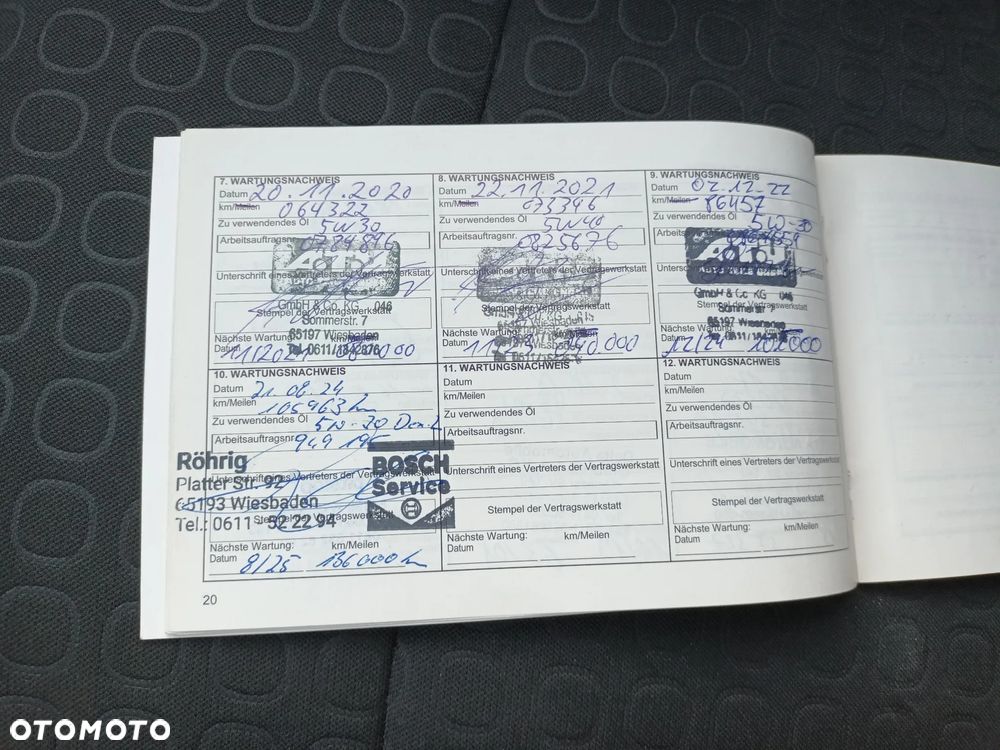 7. WARTUNGSNACHWEIS
Datum 20.11.2020
km/Meilen 064322
Zu verwendetes Öl 5W30
Arbeitsauftragsnr. 0784896
Unterschrift eines Vertreters der Vertragswerkstatt
Stempel der Vertragswerkstatt
GmbH & Co. KG 046
Sommerstr. 7
65197 Wiesbaden
Nächste Wartung: km/Meilen
Datum
8. WARTUNGSNACHWEIS
Datum 22.11.2021
km/Meilen 073346
Zu verwendetes Öl 5W40
Arbeitsauftragsnr. 0825676
Unterschrift eines Vertreters der Vertragswerkstatt
Nächste Wartung:
Datum
9. WARTUNGSNACHWEIS
Datum 02.12.22
km/Meilen 86457
Zu verwendetes Öl 5W-30
Arbeitsauftragsnr.
GmbH & Co. KG 046
Sommerstr. 7
65197 Wiesbaden
Stempel der Vertragswerkstatt
Nächste Wartung:
Datum 12/24
10. WARTUNGSNACHWEIS
Datum 21.08.24
km/Meilen
Zu verwendetes Öl 5W-30
Arbeitsauftragsnr. 949 196
Unterschrift eines Vertreters der Vertragswerkstatt
Stempel der Vertragswerkstatt
Röhrig
Platter Str. 92
65193 Wiesbaden
Tel.: 0611 - 52 22 94
BOSCH
Service
Nächste Wartung: km/Meilen
Datum 8/25
11. WARTUNGSNACHWEIS
Datum
km/Meilen
Zu verwendetes Öl
Arbeitsauftragsnr.
Unterschrift eines Vertreters der Vertragswerkstatt
Stempel der Vertragswerkstatt
Nächste Wartung: km/Meilen
Datum
12. WARTUNGSNACHWEIS
Datum
km/Meilen
Zu verwendetes Öl
Arbeitsauftragsnr.
Unterschrift eines Vertreters der Vertragswerkstatt
Stempel der Vertragswerkstatt
Nächste Wartung: km/Meilen
Datum
20
OTOMOTO